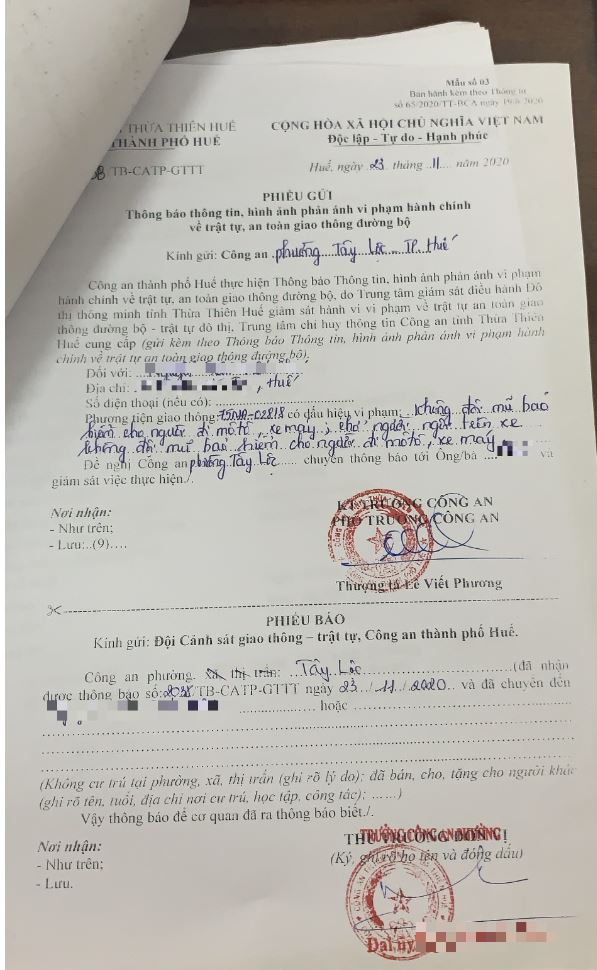 Mẫu số 03
Ban hành kèm theo Thông tư
số 65/2020/TT-BCA ngày 19/6/2020
THỪA THIÊN HUẾ
THÀNH PHỐ HUẾ
CỘNG HÒA XÃ HỘI CHỦ NGHĨA VIỆT NAM
Độc lập - Tự do - Hạnh phúc
/TB-CATP-GTTT
Huế, ngày 23 tháng 11 năm 2020
PHIẾU GỬI
Thông báo thông tin, hình ảnh phản ánh vi phạm hành chính
về trật tự, an toàn giao thông đường bộ
Kính gửi: Công an phường Tây Lộc TP Huế
Công an thành phố Huế thực hiện Thông báo Thông tin, hình ảnh phản ánh vi phạm
hành chính về trật tự, an toàn giao thông đường bộ, do Trung tâm giám sát điều hành Đô
thị thông minh tỉnh Thừa Thiên Huế giám sát hành vi vi phạm về trật tự an toàn giao
thông đường bộ - trật tự đô thị, Trung tâm chỉ huy thông tin Công an tỉnh Thừa Thiên
Huế cung cấp (gửi kèm theo Thông báo Thông tin, hình ảnh phản ánh vi phạm hành
chính về trật tự an toàn giao thông đường bộ).
Đối với:
Địa chỉ: , Huế
Số điện thoại (nếu có):
Phương tiện giao thông: 02818 có dấu hiệu vi phạm: không đội mũ bảo
hiểm cho người đi mô tô, xe máy; chở người ngồi trên xe
không đội mũ bảo hiểm cho người đi mô tô, xe máy
Đề nghị Công an phường Tây Lộc chuyển thông báo tới Ông/bà và
giám sát việc thực hiện./.
Nơi nhận:
- Như trên;
- Lưu:..(9)....
KT.TRƯỞNG CÔNG AN
PHÓ TRƯỞNG CÔNG AN
Thượng tá Lê Viết Phương
PHIẾU BÁO
Kính gửi: Đội Cảnh sát giao thông – trật tự, Công an thành phố Huế.
Công an phường, xã, thị trấn: Tây Lộc (đã nhận
được thông báo số: /TB-CATP-GTTT ngày 23/11/2020 và đã chuyển đến
hoặc
(Không cư trú tại phường, xã, thị trấn (ghi rõ lý do): đã bán, cho, tặng cho người khác
(ghi rõ tên, tuổi, địa chỉ nơi cư trú, học tập, công tác); ......)
Vậy thông báo để cơ quan đã ra thông báo biết./.
Nơi nhận:
- Như trên;
- Lưu.
THỦ TRƯỞNG ĐƠN VỊ
TRƯỞNG CÔNG AN PHƯỜNG
(Ký, ghi rõ họ tên và đóng dấu)
Đại úy